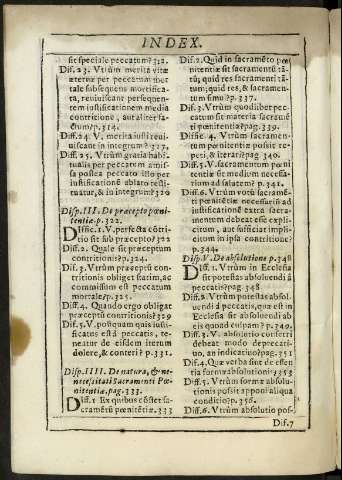 INDEX.
sit speciale peccatum? 312.
Dif. 23. Vtrùm merita vitæ
æternæ per peccatum mor-
tale subsequens mortificata,
reuiuiscant per sequen-
tem iustificationem media
contritione, aut aliter fa-
ctum? p. 314.
Diff. 24 V. merita iusti reui
uiscant in integrum? 327.
Diff. 25. Vtrùm gratia habi-
tualis per peccatum amis-
sa postea peccato illo per
iustificationē ablato resti-
tuatur, & in integrum? 329
Disp. III. De præcepto pœni-
tentiæ p. 322.
Diffic. 1 V. perfecta cōtri-
tio sit sub præcepto? 322
Dif. 2. Quale sit præceptum
contritionis? p. 324.
Dif. 3. Vtrùm præceptū con-
tritionis obliget statim, ac
commissum est peccatum
mortale? p. 325.
Diff. 4. Quando ergo obligat
præceptū contritionis? 329
Dif. 5. V. postquam quis iusti-
ficatus est à peccatis, te-
neatur de eisdem iterum
dolere, & conteri? p. 331.
Disp. IIII. De natura, & ne-
cessitati Sacramenti Pœ-
nitentiæ. pag. 333.
Diff. 1 Ex quibus cōstet sa-
cramētū pœnitētiæ. 333
Dif. 2. Quid in sacramēto pœ
nitentiæ sit sacramentū tā-
tū; quid res sacramenti tā-
tum; quid res, & sacramen-
tum simul? p. 337.
Dif. 3. Vtrùm quodlibet pec-
catum sit materia sacramē
ti pœnitentiæ? pag. 339.
Diffic. 4. Vtrùm sacramen-
tum pœnitentiæ possit re-
peti, & iterati? pag. 340.
Diff. 5. V. sacramentum pœni
tentiæ sit medium necessa-
rium ad salutem? p. 341.
Diff. 6. Vtrùm votū sacramē-
ti pœnitētiæ necessariū ad
iustificationē extra sacra-
mentum debeat esse expli
citum, aut sufficiat implici-
citum in ipsa contritione?
p. 344.
Disp. V. De absolutione p. 348
Diff. 1. Vtrùm in Ecclesia
sit potestas absoluendi à
peccatis? pag. 348
Dif. 2. Vtrùm potestas absol-
uendi à peccatis, quæ est in
Ecclesia sit absoluendi ab
eis quoad culpam? p. 349.
Diff. 3. V. absolutio cōsistere
debeat modo deprecati-
uo, an indicatiuo? pag. 351
Dif. 4. Quæ verba sint de essen
tia formæ absolutionis? 353
Diff. 5. Vtrùm formæ absolu-
tionis possit apponi aliqua
conditio? p. 356.
Diff. 6. Vtrùm absolutio pos-
Dif. 7